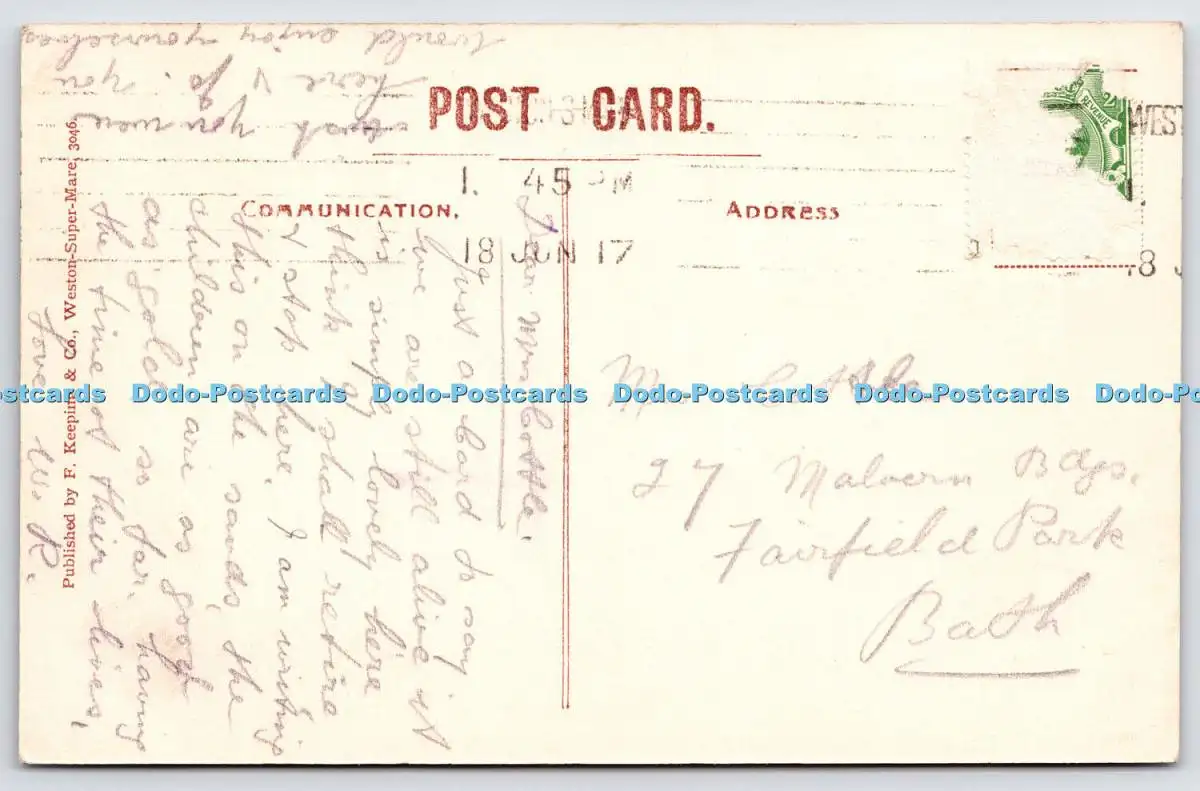 POST CARD.
COMMUNICATION.
ADDRESS
REVENUE
WEST
1. 45 PM
18 JUN 17
18 J
Dear Mrs Cottle,
Just a Card to say
we are still alive it
is simply lovely here
think I shall retire
& stop here. I am writing
this on the sands, the
children are as good
as gold so far. having
the time of their lives,
Love W. R.
wish you were
here & Jo. you
would enjoy yourselves
Mrs Cottle
27 Malvern Bdgs.
Fairfield Park
Bath
Published by F. Keeping & Co., Weston-Super-Mare, 3046.
Dodo-Postcards Dodo-Postcards Dodo-Postcards Dodo-Postcards Dodo-Postcards